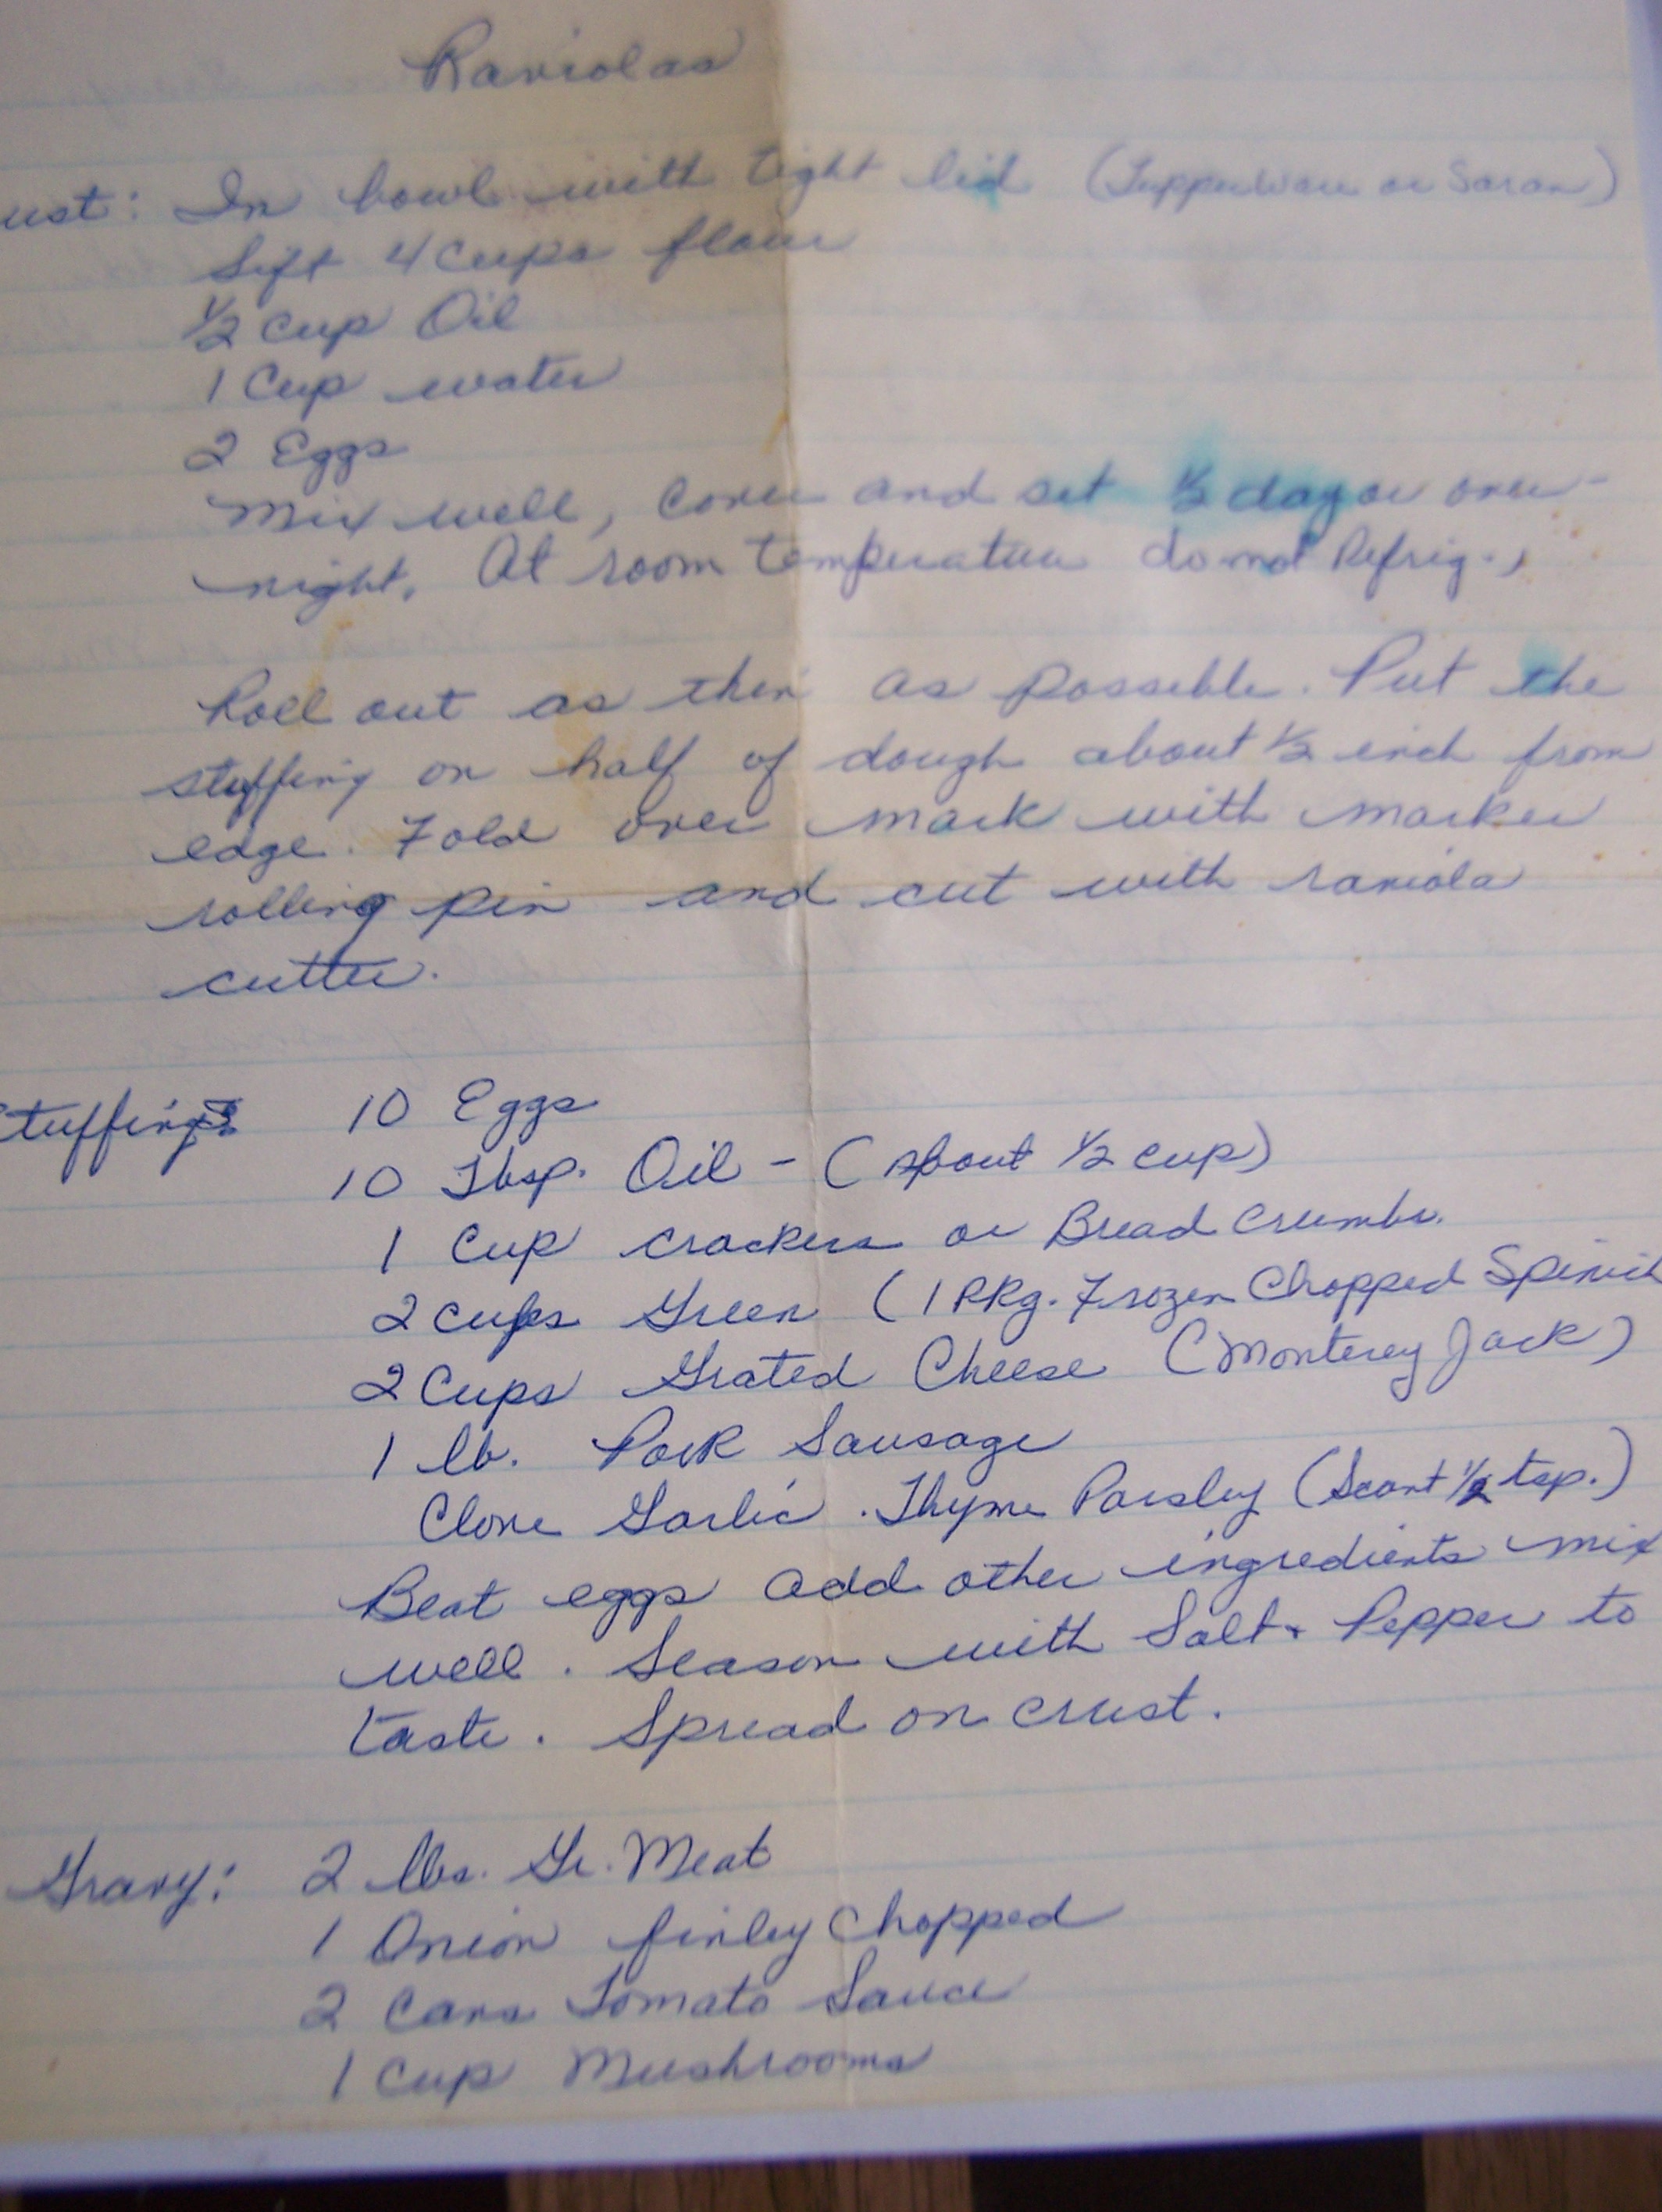 Raviolas
ust: In bowl with tight lid (Tupperware or Saran)
Sift 4 Cups flour
½ Cup Oil
1 Cup water
2 Eggs
Mix well, Cover and set ½ day or over-
night. At room temperature do not Refrig.,
Roll out as thin as possible. Put the
stuffing on half of dough about ½ inch from
edge. Fold over mark with marker
rolling pin and cut with raviola
cutter.
Stuffing: 10 Eggs
10 Tbsp. Oil - (About ½ cup)
1 Cup crackers or Bread Crumbs.
2 cups Green (1 PKg. Frozen Chopped Spinich
2 Cups Grated Cheese (Monterey Jack)
1 lb. Pork Sausage
Clove Garlic. Thyme Parsley (Scant ½ tsp.)
Beat eggs add other ingredients mix
well. Season with Salt & Pepper to
taste. Spread on crust.
Gravy: 2 lbs. Gr. Meat
1 Onion finley Chopped
2 Cans Tomato Sauce
1 Cup Mushrooms